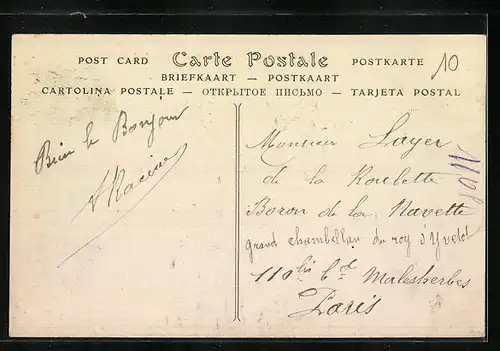 POST CARD Carte Postale POSTKARTE
BRIEFKAART — POSTKAART
CARTOLINA POSTALE — ОТКРЫТОЕ ПИСЬМО — TARJETA POSTAL
10
Bien le Bonjour
Racine
Monsieur Layer
de la Roulette
Boron de la Navette
grand chambellan du roy d'Yvetot
110bis bd Malesherbes
Paris